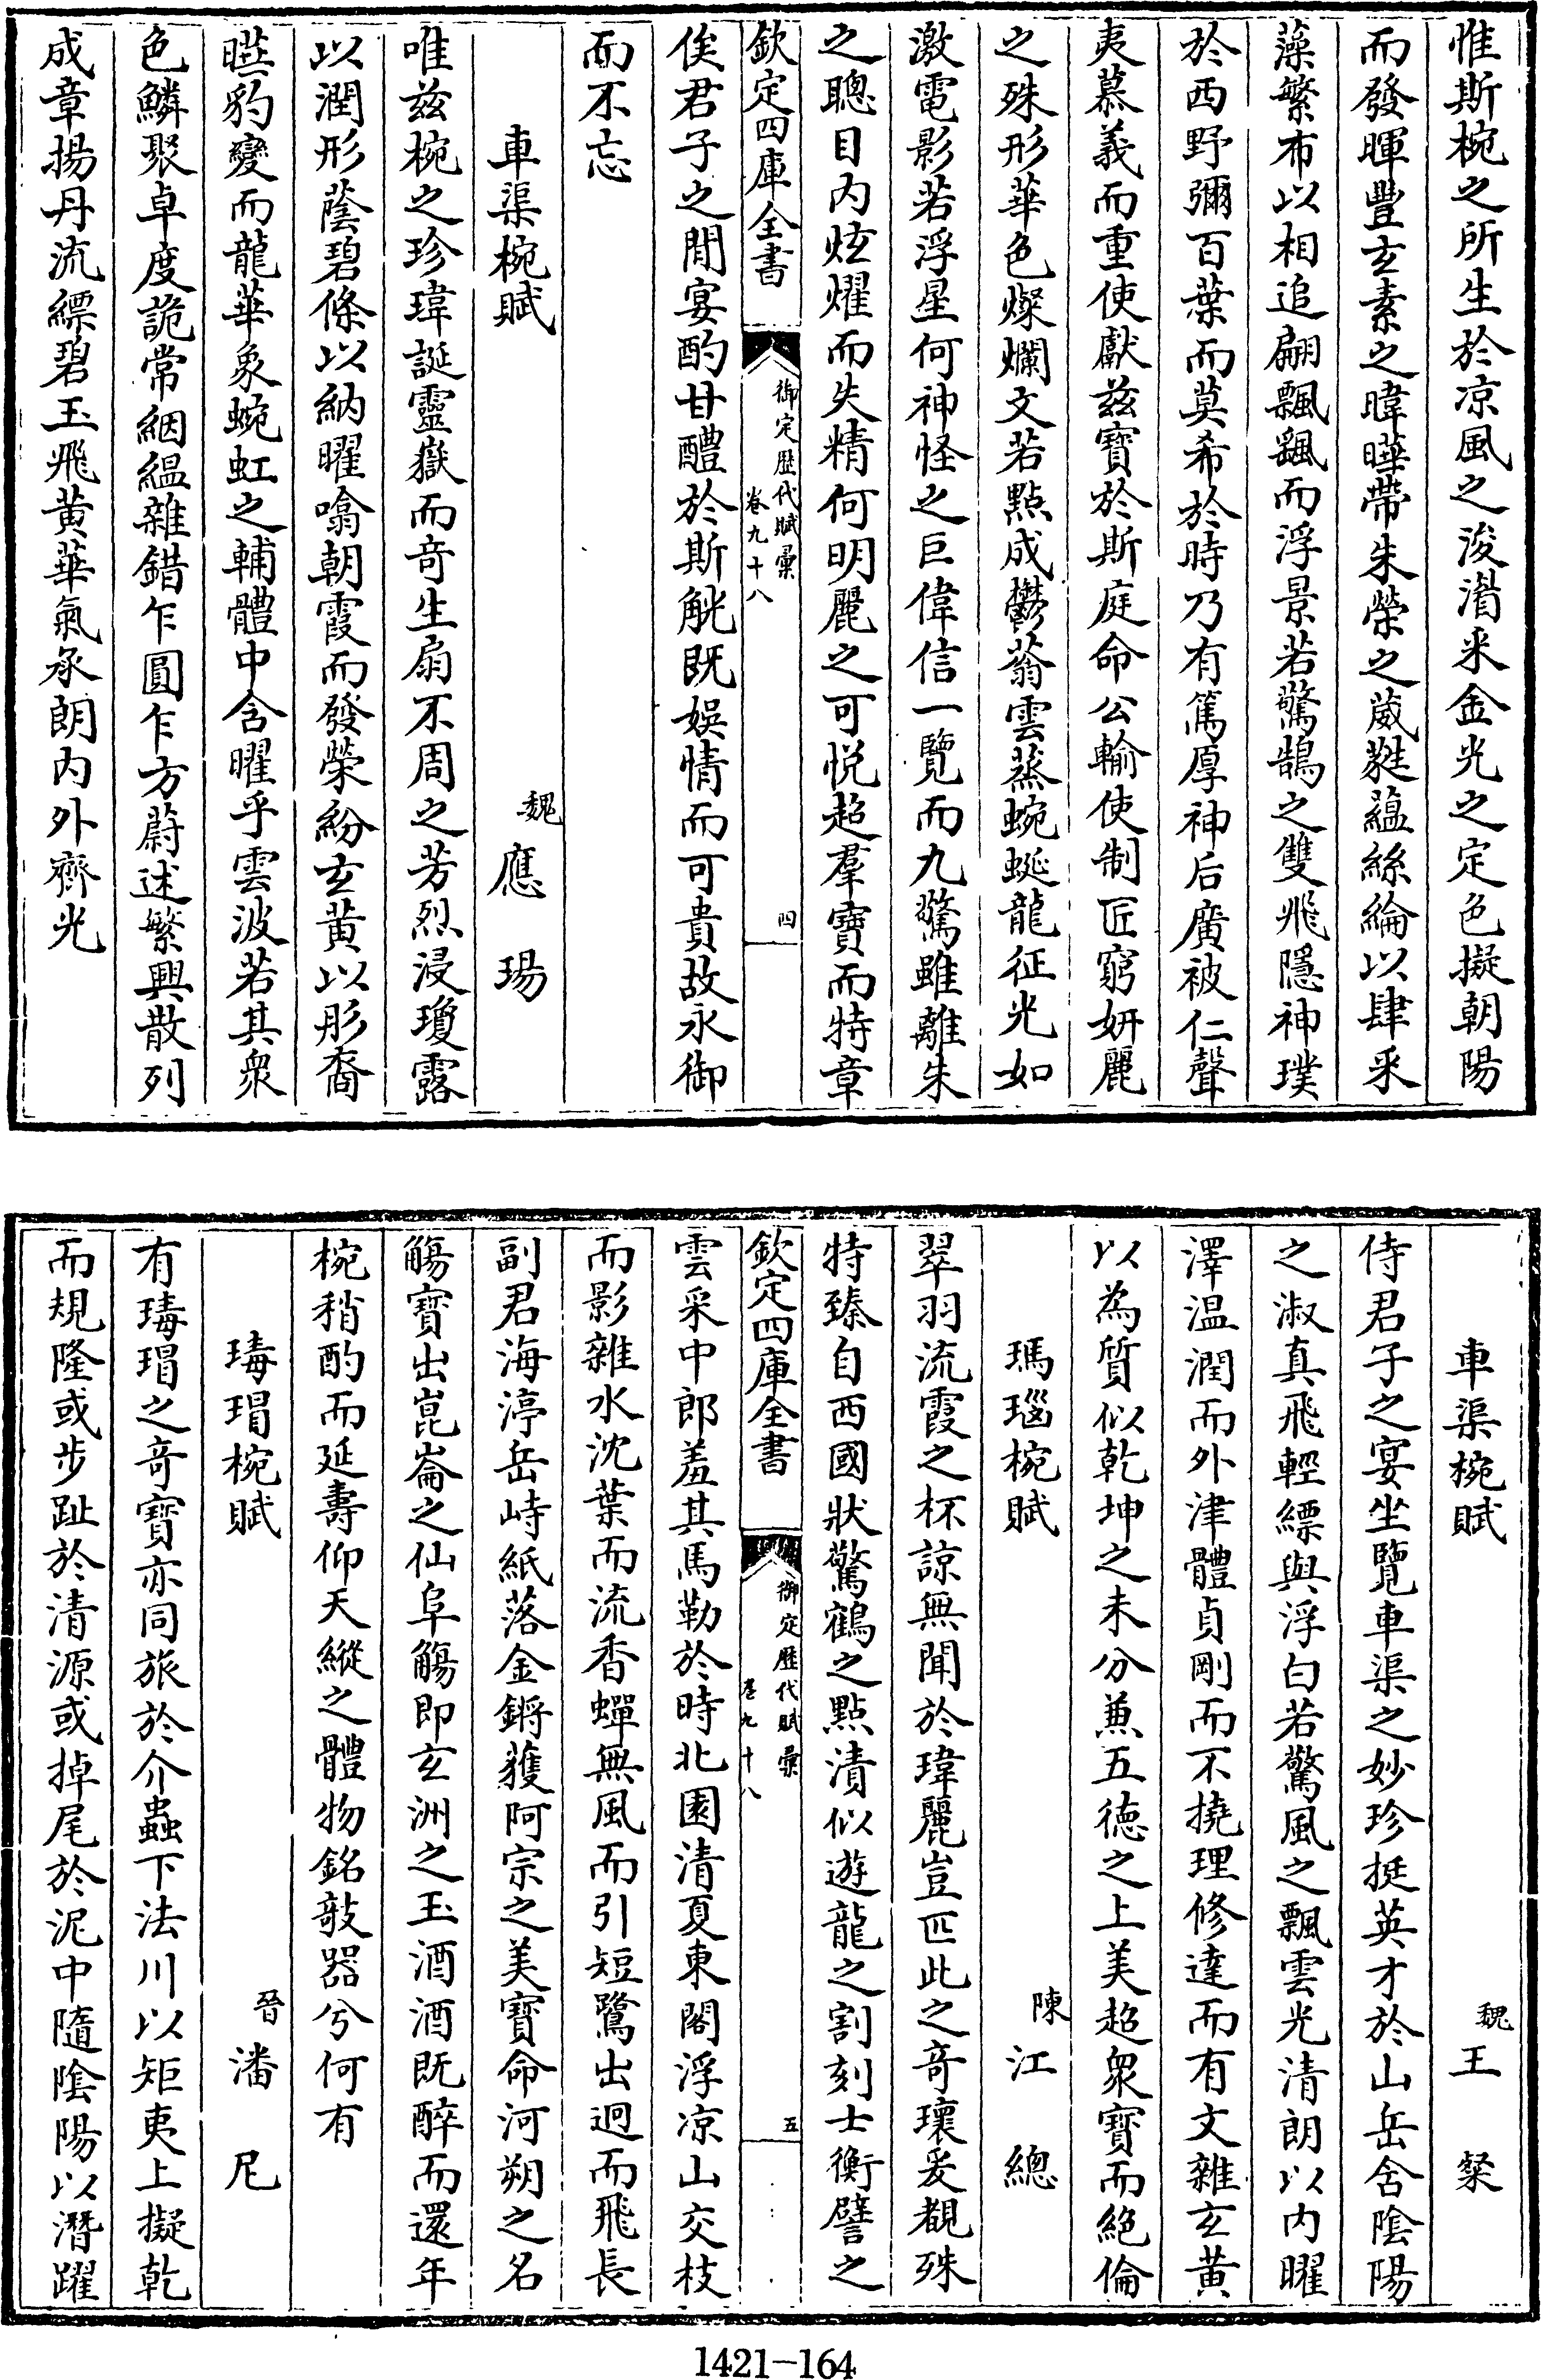 惟斯椀之所生於凉風之浚湄采金光之定色擬朝陽
而發暉豐玄素之暐曄帶朱榮之葳蕤藴絲綸以肆采
藻繁布以相追翩飄颻而浮景若驚鵠之雙飛隱神璞
於西野彌百葉而莫希於時乃有篤厚神后廣被仁聲
夷慕義而重使獻兹寶於斯庭命公輸使制匠窮妍麗
之殊形華色燦爛文若點成鬱蓊雲蒸蜿蜒龍征光如
激電影若浮星何神怪之巨偉信一覽而九驚雖離朱
之聰目内炫燿而失精何明麗之可悦超羣寶而特章
欽定四庫全書
御定歴代賦彙
卷九十八
四
俟君子之閒宴酌甘醴於斯觥既娱情而可貴故永御
而不忘
車渠椀賦
魏應瑒
唯兹椀之珍瑋誕靈嶽而竒生扇不周之芳烈浸瓊露
以潤形蔭碧條以納曜噏朝霞而發榮紛玄黄以彤裔
曄豹變而龍華象蜿虹之輔體中含曜乎雲波若其衆
色鱗聚卓度詭常絪緼雜錯乍圓乍方蔚述繁興散列
成章揚丹流縹碧玉飛黄華氣承朗内外齊光
車渠椀賦
魏王粲
侍君子之宴坐覽車渠之妙珍挺英才於山岳含隂陽
之淑真飛輕縹與浮白若驚風之飄雲光清朗以内曜
澤温潤而外津體貞剛而不撓理修達而有文雜玄黄
以為質似乾坤之未分兼五德之上美超衆寳而絶倫
瑪瑙椀賦
陳江總
翠羽流霞之杯諒無聞於瑋麗豈匹此之竒瓌爰覩殊
特臻自西國狀驚鶴之點漬似遊龍之割刻士衡譬之
欽定四庫全書
御定歴代賦彙
卷九十八
五
雲采中郎羞其馬勒於時北園清夏東閣浮凉山交枝
而影雜水沈葉而流香蟬無風而引短鷺出迥而飛長
副君海渟岳峙紙落金鏘䕶阿宗之美寶命河朔之名
觴寶出崑崙之仙阜觴即玄洲之玉酒酒既醉而還年
椀稍酌而延壽仰天縱之體物銘敧器兮何有
瑇瑁椀賦
晉潘尼
有瑇瑁之竒寶亦同旅於介蟲下法川以矩夷上擬乾
而規隆或步趾於清源或掉尾於泥中隨隂陽以潛躍
1421-164